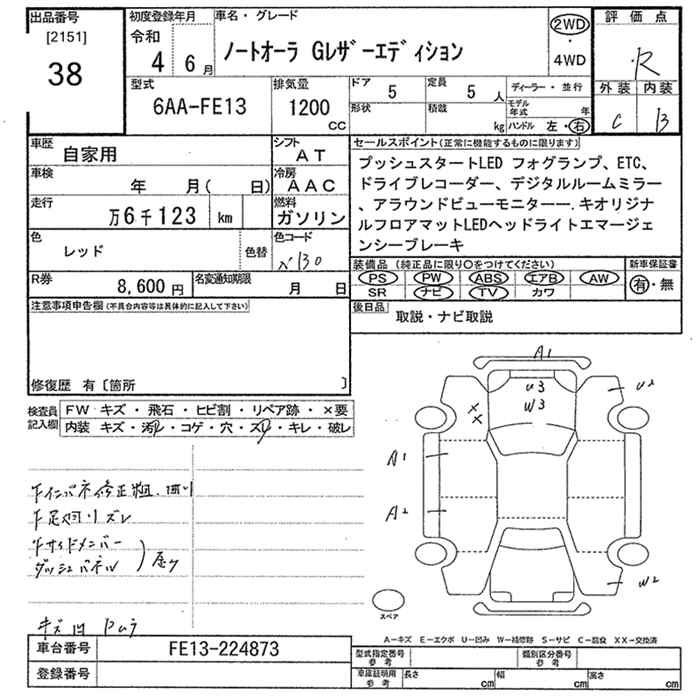 出品番号
[2151]
38
初度登録年月
令和
4 6月
車名・グレード
ノートオーラ Gレザーエディション
2WD
・
4WD
評価点
R
外装 内装
C B
型式
6AA-FE13
排気量
1200
CC
ドア 5
定員 5 人
形状
積載 kg
ディーラー・並行
モデル年式 年
ハンドル 左・右
車歴 自家用
シフト AT
車検 年 月( 日)
冷房 AAC
走行 万6千123 km
燃料 ガソリン
色 レッド
色替
色コード
R券 8,600円
名変通知期限 月 日
セールスポイント(正常に機能するものに限ります)
プッシュスタートLED フォグランプ、ETC、
ドライブレコーダー、デジタルルームミラー
、アラウンドビューモニター一.キオリジナ
ルフロアマットLEDヘッドライトエマージェ
ンシーブレーキ
装備品 (純正品に限り〇をつけてください)
PS PW ABS エアB AW
SR ナビ TV カワ
新車保証書
有・無
後日品 取説・ナビ取説
注意事項申告欄(不具合内容等は具体的に記入して下さい)
修復歴 有〔箇所 〕
検査員記入欄
FW キズ・飛石・ヒビ割・リペア跡・×要
内装 キズ・汚れ・コゲ・穴・スレ・キレ・破レ
A1
U3
W3
U2
×
×
A1
A2
W2
スペア
A−キズ E−エクボ U−凹み W−補修跡 S−サビ C−腐食 XX−交換済
車台番号 FE13-224873
登録番号
型式指定番号 参考
類別区分番号 参考
車庫証明用 参考
長さ cm
幅 cm
高さ cm